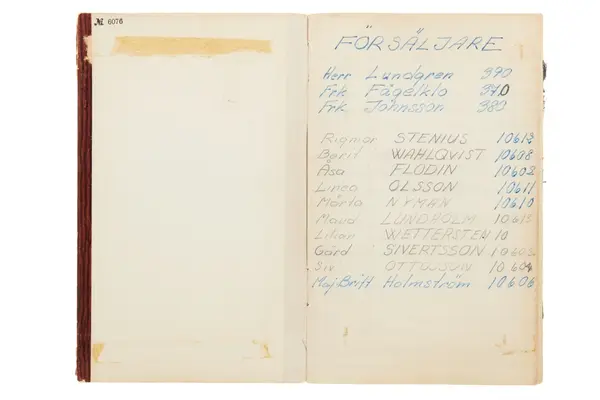 № 6076
FÖRSÄLJARE
Herr Lundgren 390
Frk Fågelklo 370
Frk Johnsson 380
Rigmor STENIUS 10613
Berit WAHLQVIST 10608
Åsa FLODIN 10602
Linea OLSSON 10611
Märta NYMAN 10610
Maud LUNDHOLM
Lilian WETTERSTEN 10
Gärd SIVERTSSON 10605
Siv OTTOSSON 10604
Maj-Britt Holmström 10606